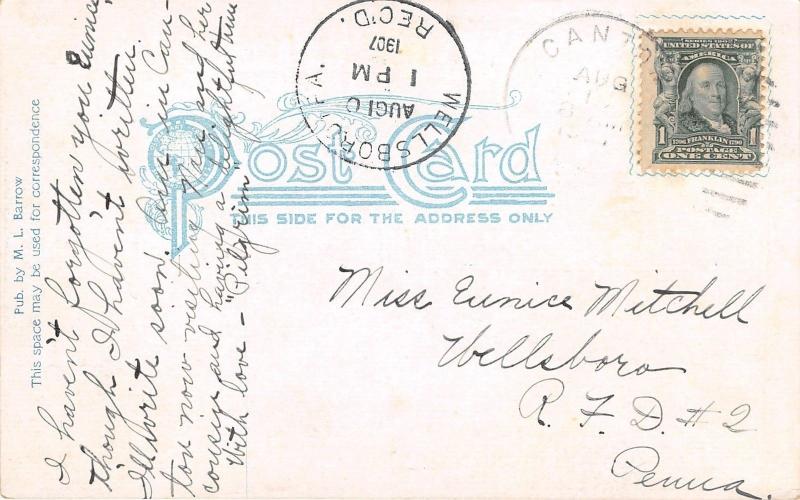 Pub. by M. L. Barrow
This space may be used for correspondence
I haven't forgotten you Eunice,
though I haven't written.
I'll write soon. Am in Can-
ton now visiting and her
cousin and having a delightful time
With love - "Pilgrim"
WELLSBORO, PA.
AUG 10
1 PM
1907
REC'D.
CANTON
AUG
SERIES 1902
UNITED STATES OF
AMERICA
1 1
1706 FRANKLIN 1790
POSTAGE
ONE CENT
Post Card
THIS SIDE FOR THE ADDRESS ONLY
Miss Eunice Mitchell
Wellsboro
R. F. D. # 2
Penna.